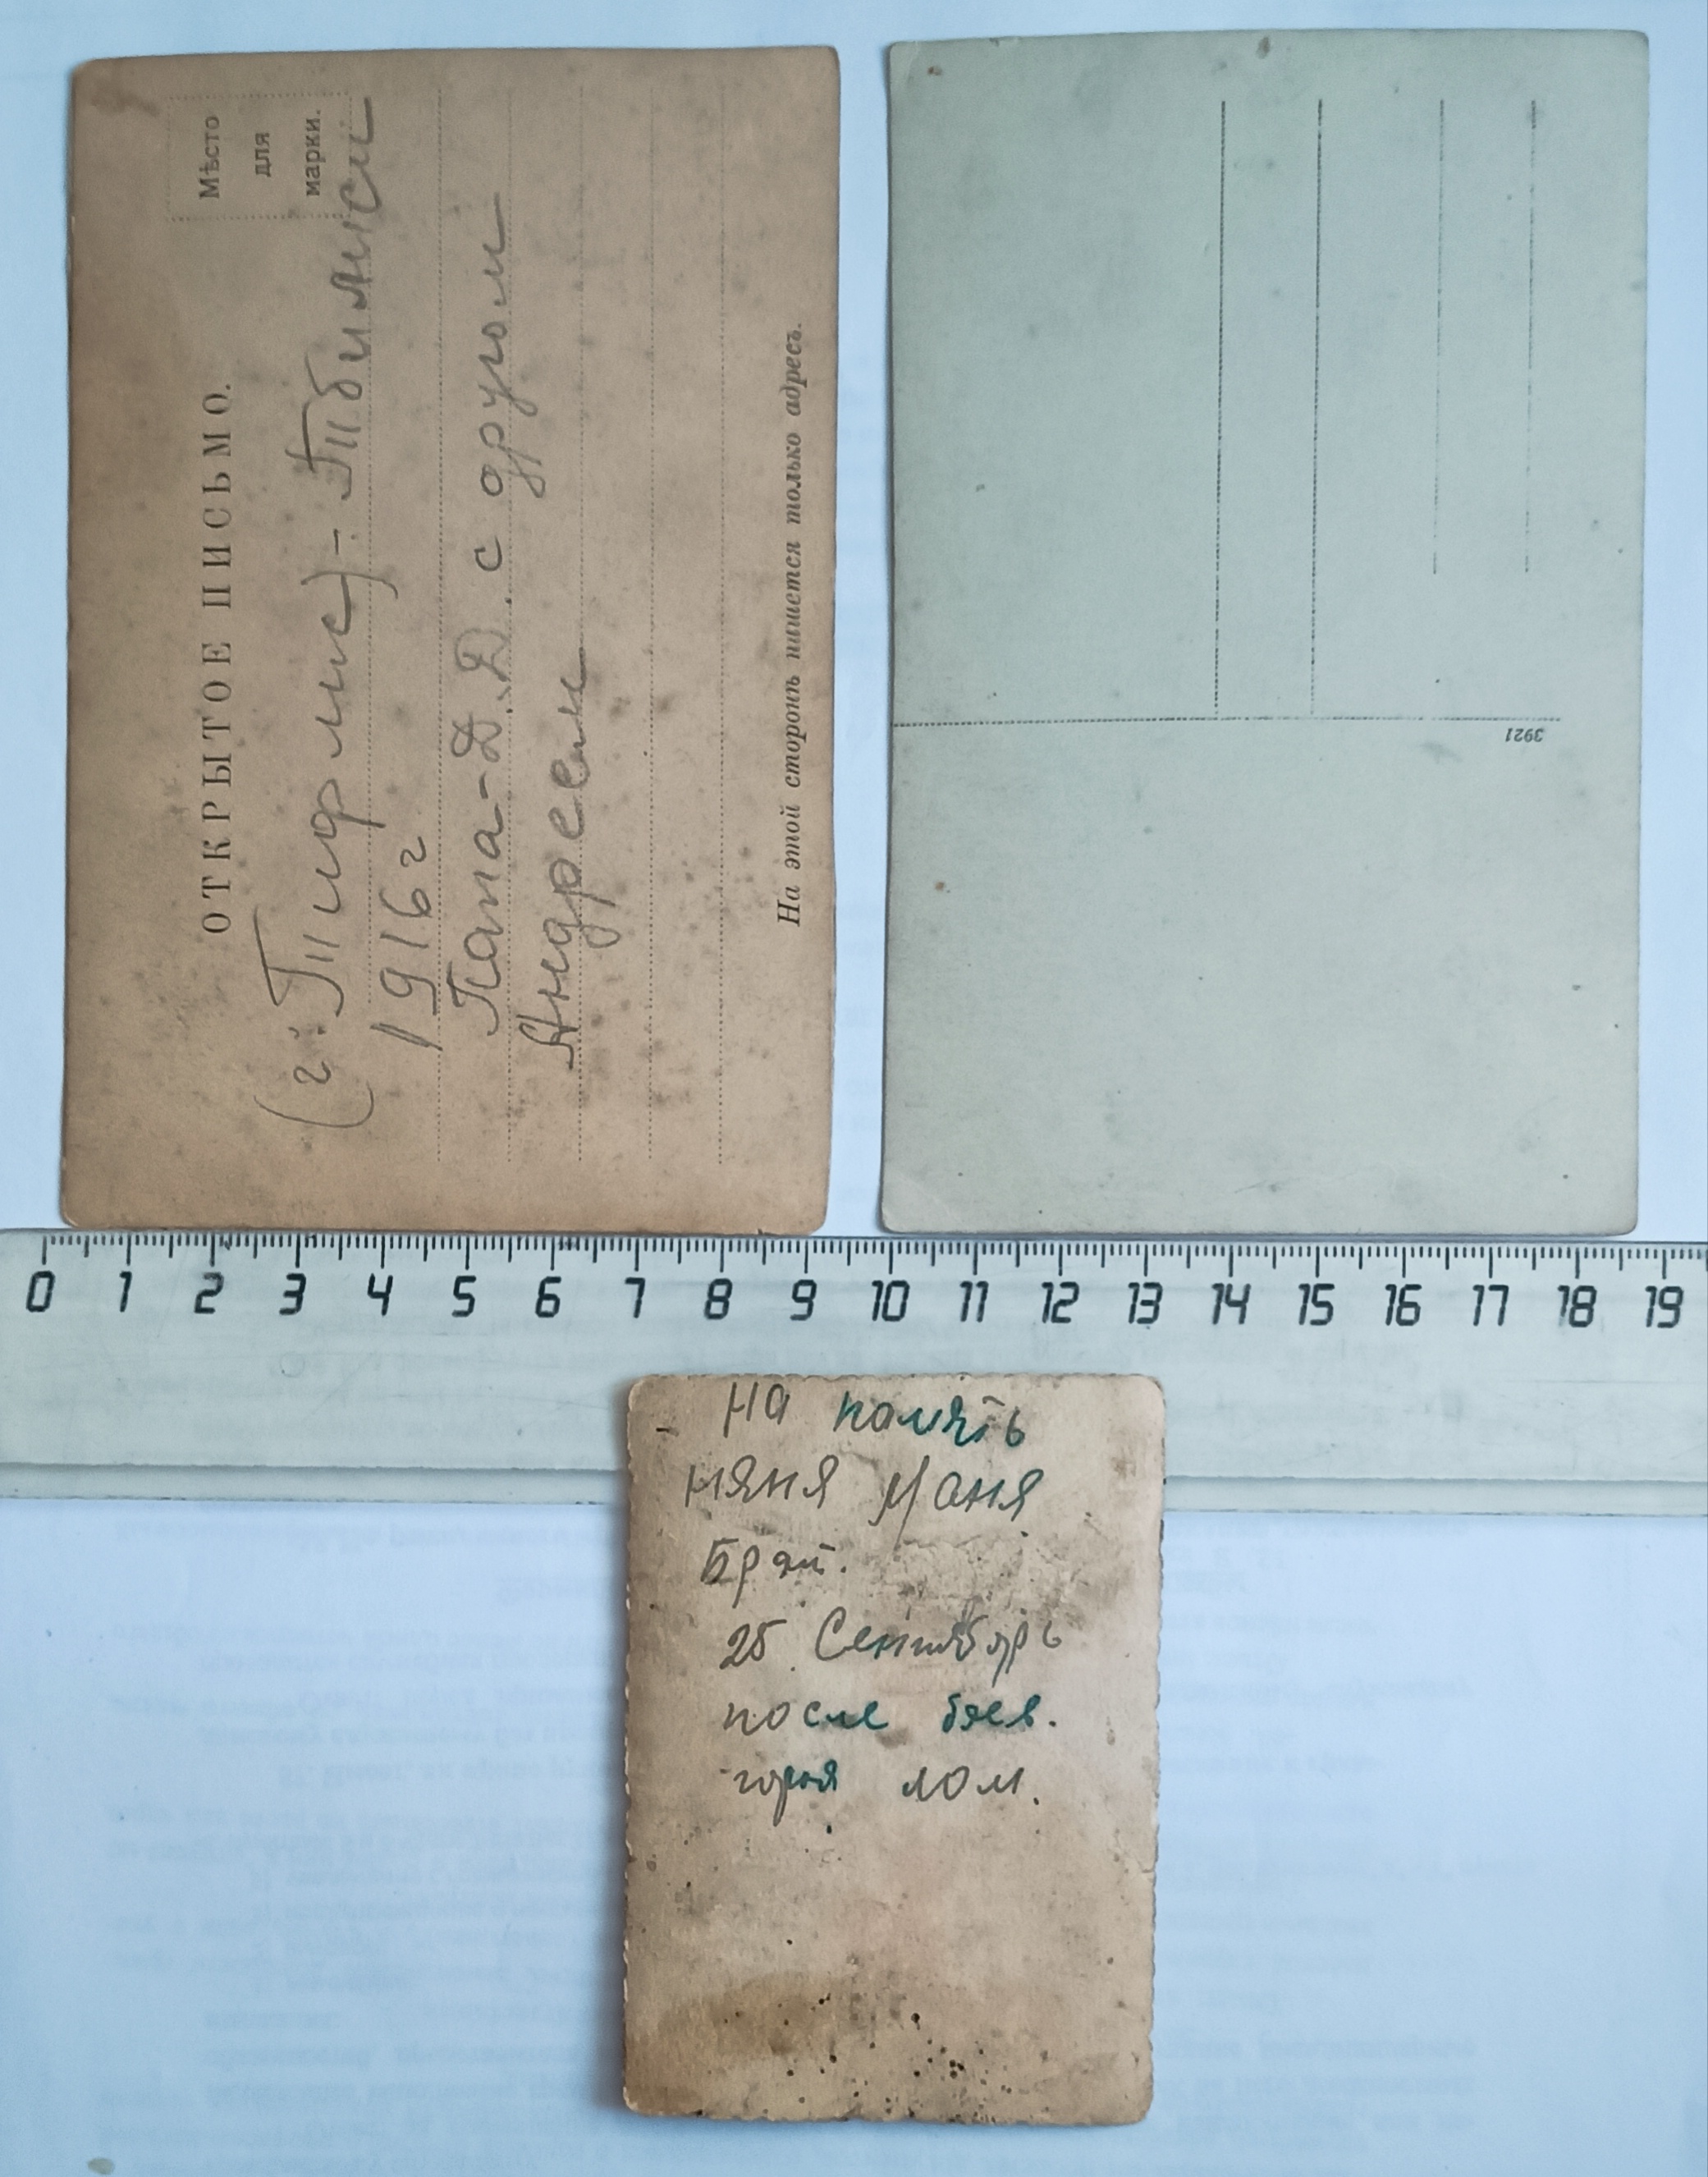 ОТКРЫТОЕ ПИСЬМО.
Мѣсто
для
марки.
(г. Тифлис) - Тбилиси
1916 г
Папа - Д. Д. с другом
Андреем
На этой сторонѣ пишется только адресъ.
3921
0 1 2 3 4 5 6 7 8 9 10 11 12 13 14 15 16 17 18 19
на помять
няня Маня
Брят.
25 Сентябрь
после бяев.
горая лом.